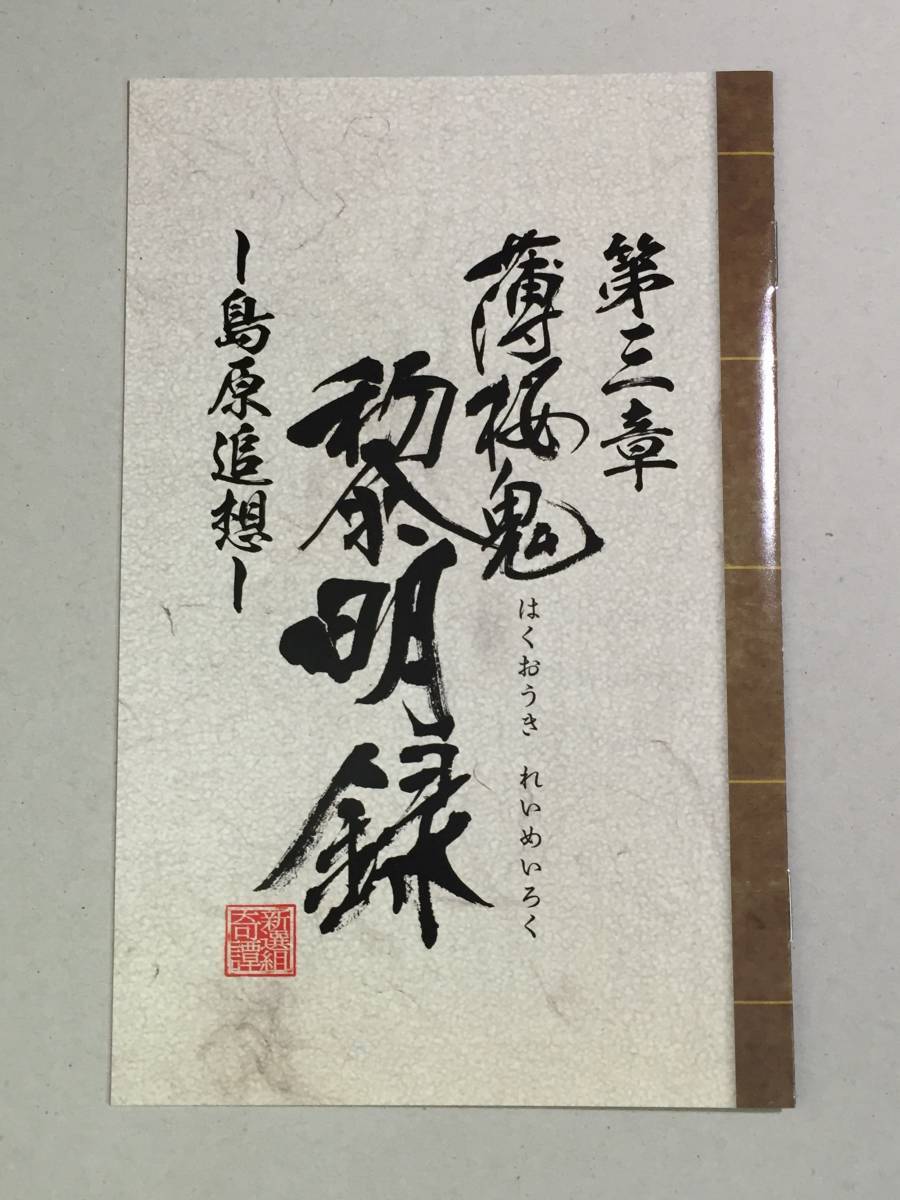 第三章
薄桜鬼
はくおうき れいめいろく
黎明録
ー島原追想ー
新選組
奇譚